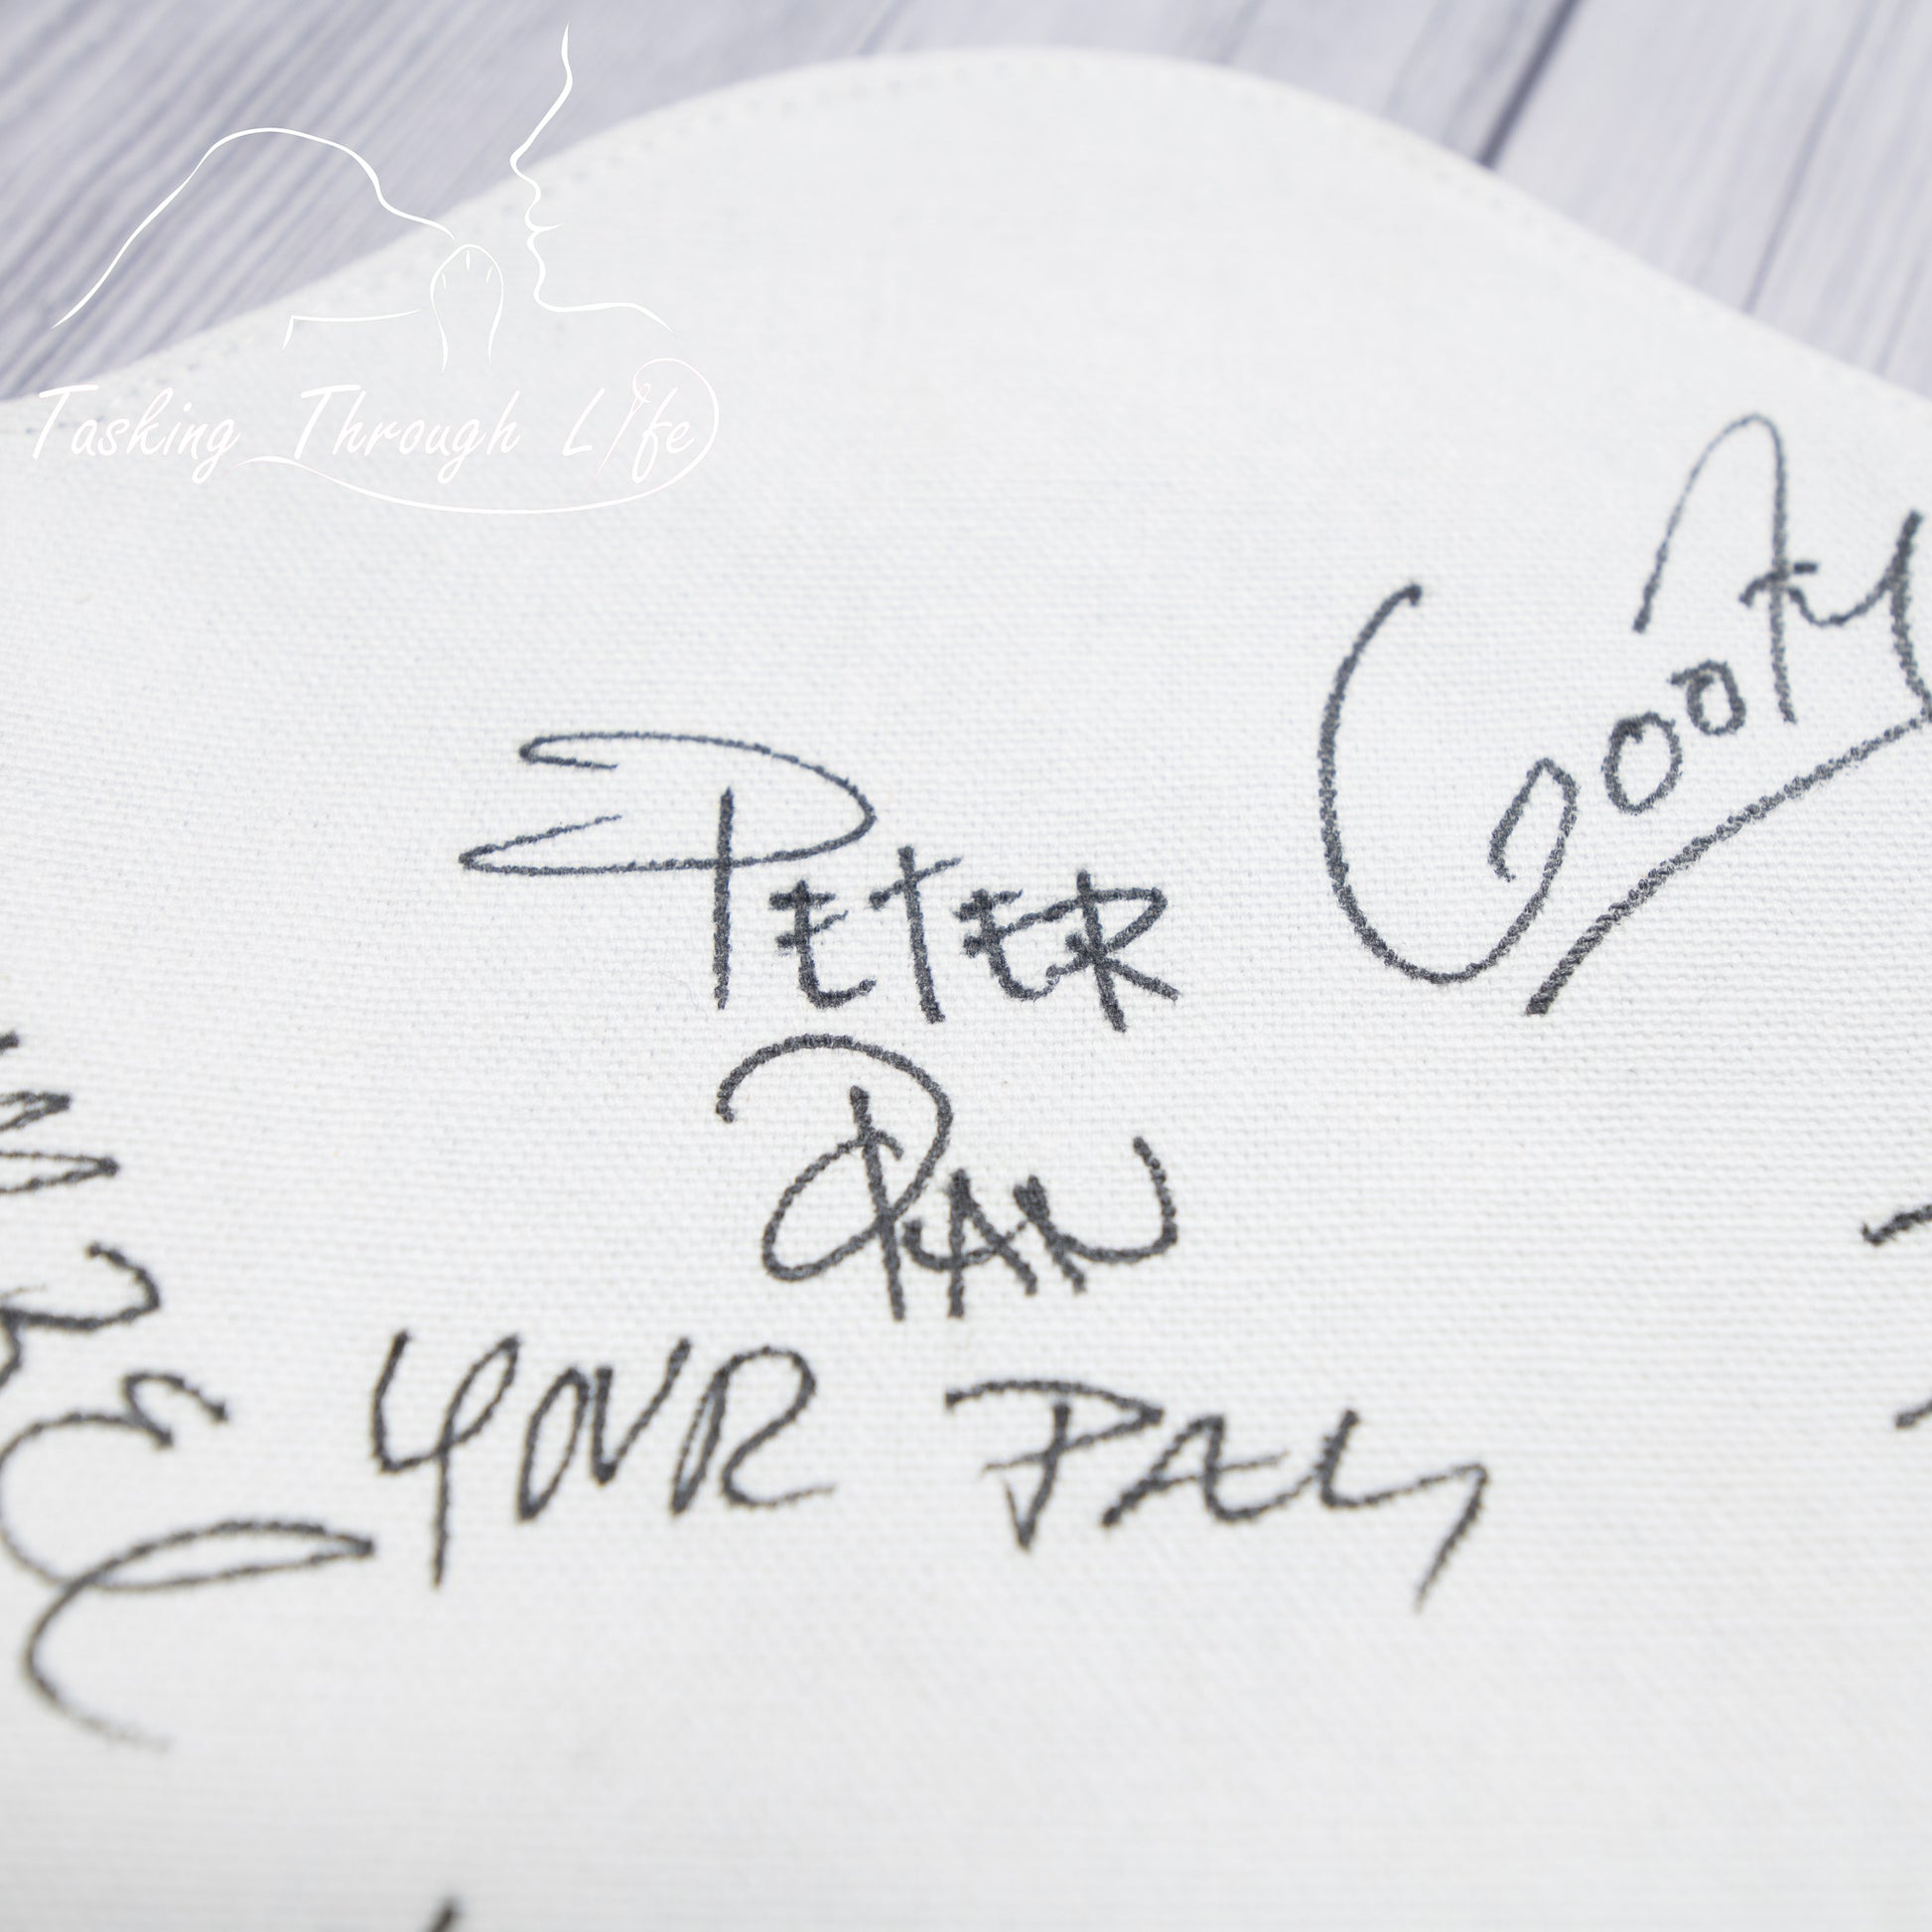 Tasking Through Life
GOOfy
PETER
PAN
YOUR PAL,